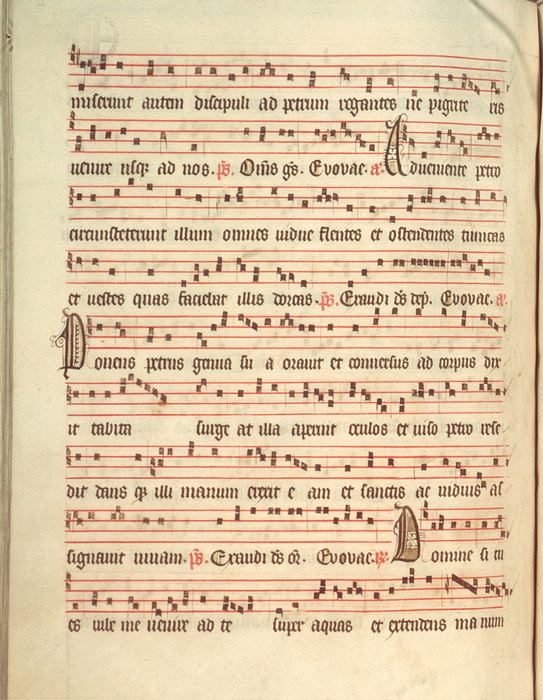 miserunt autem discipuli ad petrum rogantes ne pigrite ris
uenire usq; ad nos. ps. Oms gs. Evovae. a. Adueniente petro
circunsteterunt illum omnes uidue flentes et ostendentes tunicas
et uestes quas faciebat illis dorcas. ps. Exaudi ds dep. Evovae. a.
Ponens petrus genua su a orauit et conuersus ad corpus dix
it tabita surge at illa aperuit oculos et uiso petro rese
dit dans q; illi manum erexit e am et sanctis ac uiduis as
signauit uiuam. ps. Exaudi ds o. Evovae. R. Domine si tu
es iube me uenire ad te super aquas et extendens ma num